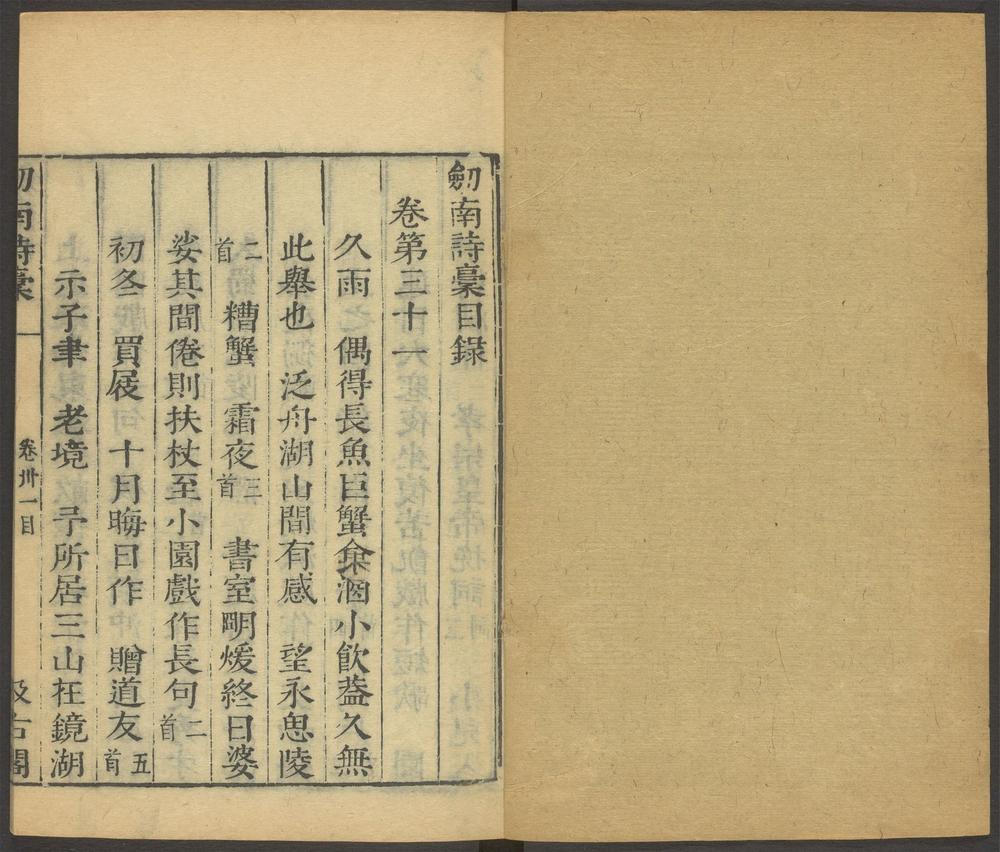 劒南詩稾目錄
卷第三十一
久雨 偶得長魚巨蟹命酒小飲葢久無
此舉也 泛舟湖山間有感 望永思陵
二首 糟蟹 霜夜三首 書室明煖終日婆
娑其間倦則扶杖至小園戲作長句二首
初冬 買屐 十月晦日作 贈道友五首
上 示子聿 老境 予所居三山在鏡湖
劒南詩稾 卷卅一目 汲古閣